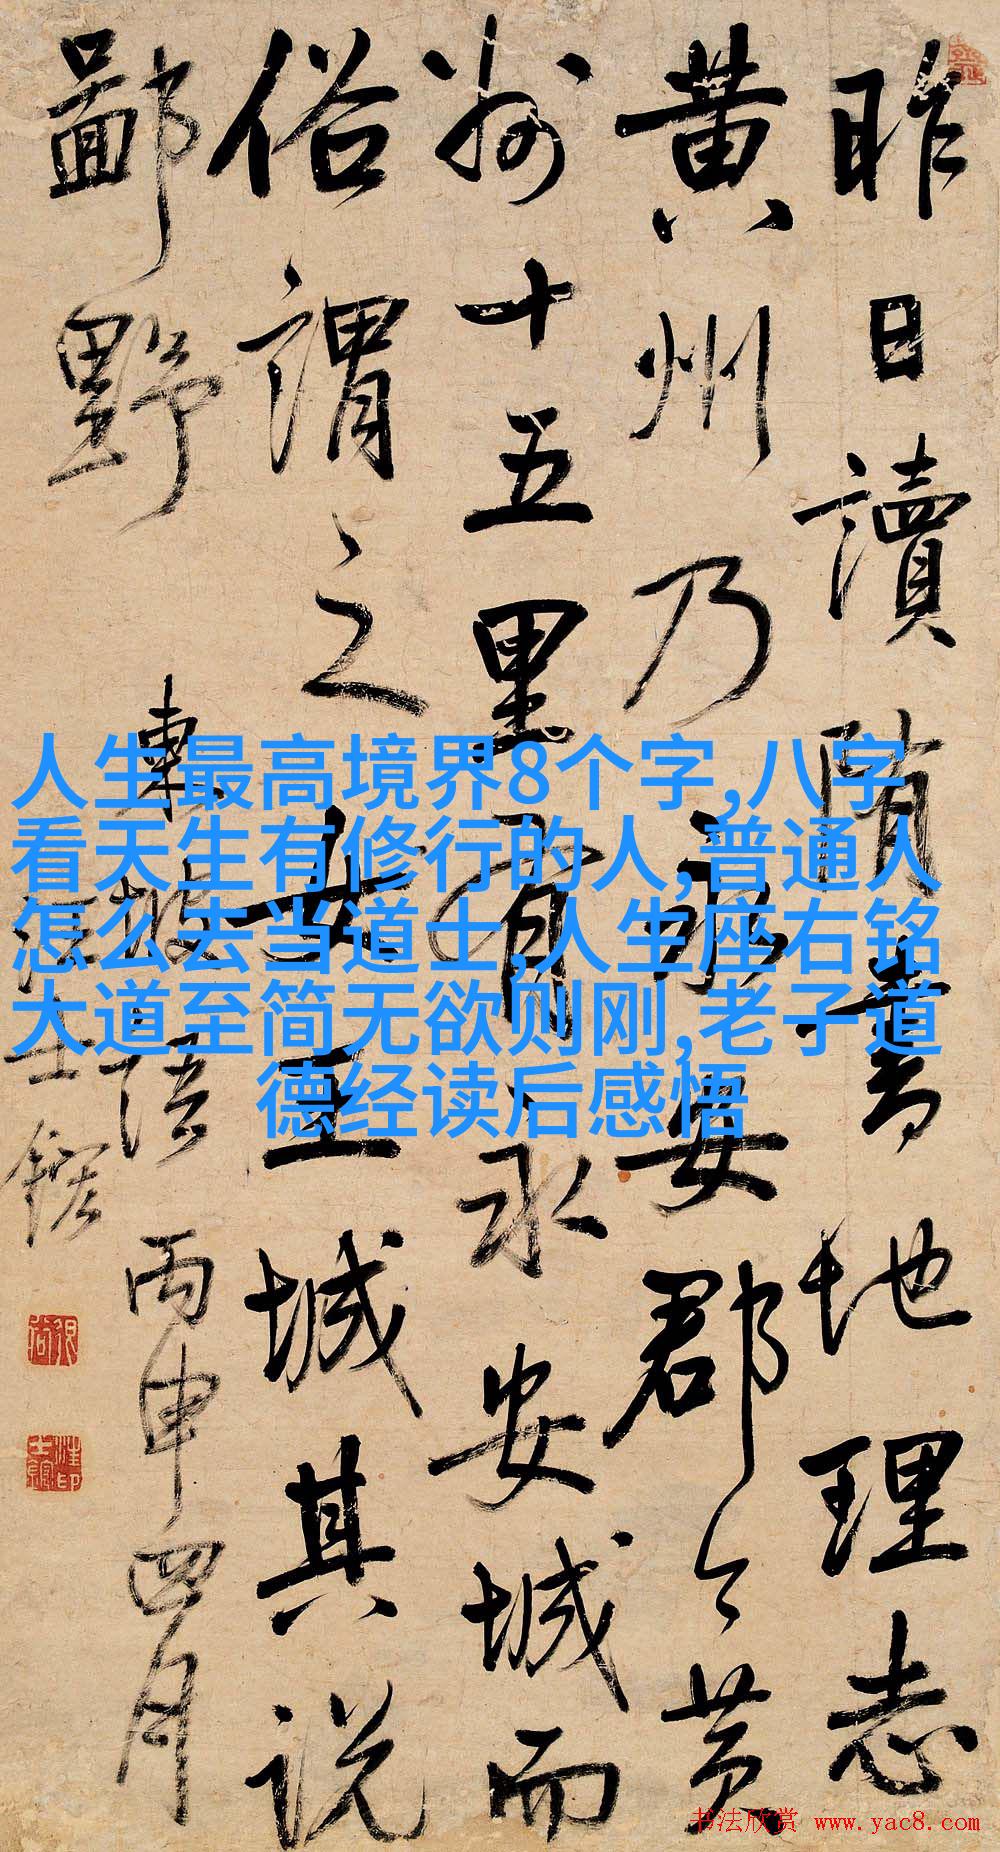 昨日讀隋書地理志
黄州乃永安郡今黄
州十五里有永安城而
俗謂之女王城其説
鄙野
東坡語 丙申四月
人生最高境界8个字,八字
看天生有修行的人,普通人
怎么去当道士,人生座右铭
大道至简无欲则刚,老子道
德经读后感悟
书法欣赏 www.yac8.com